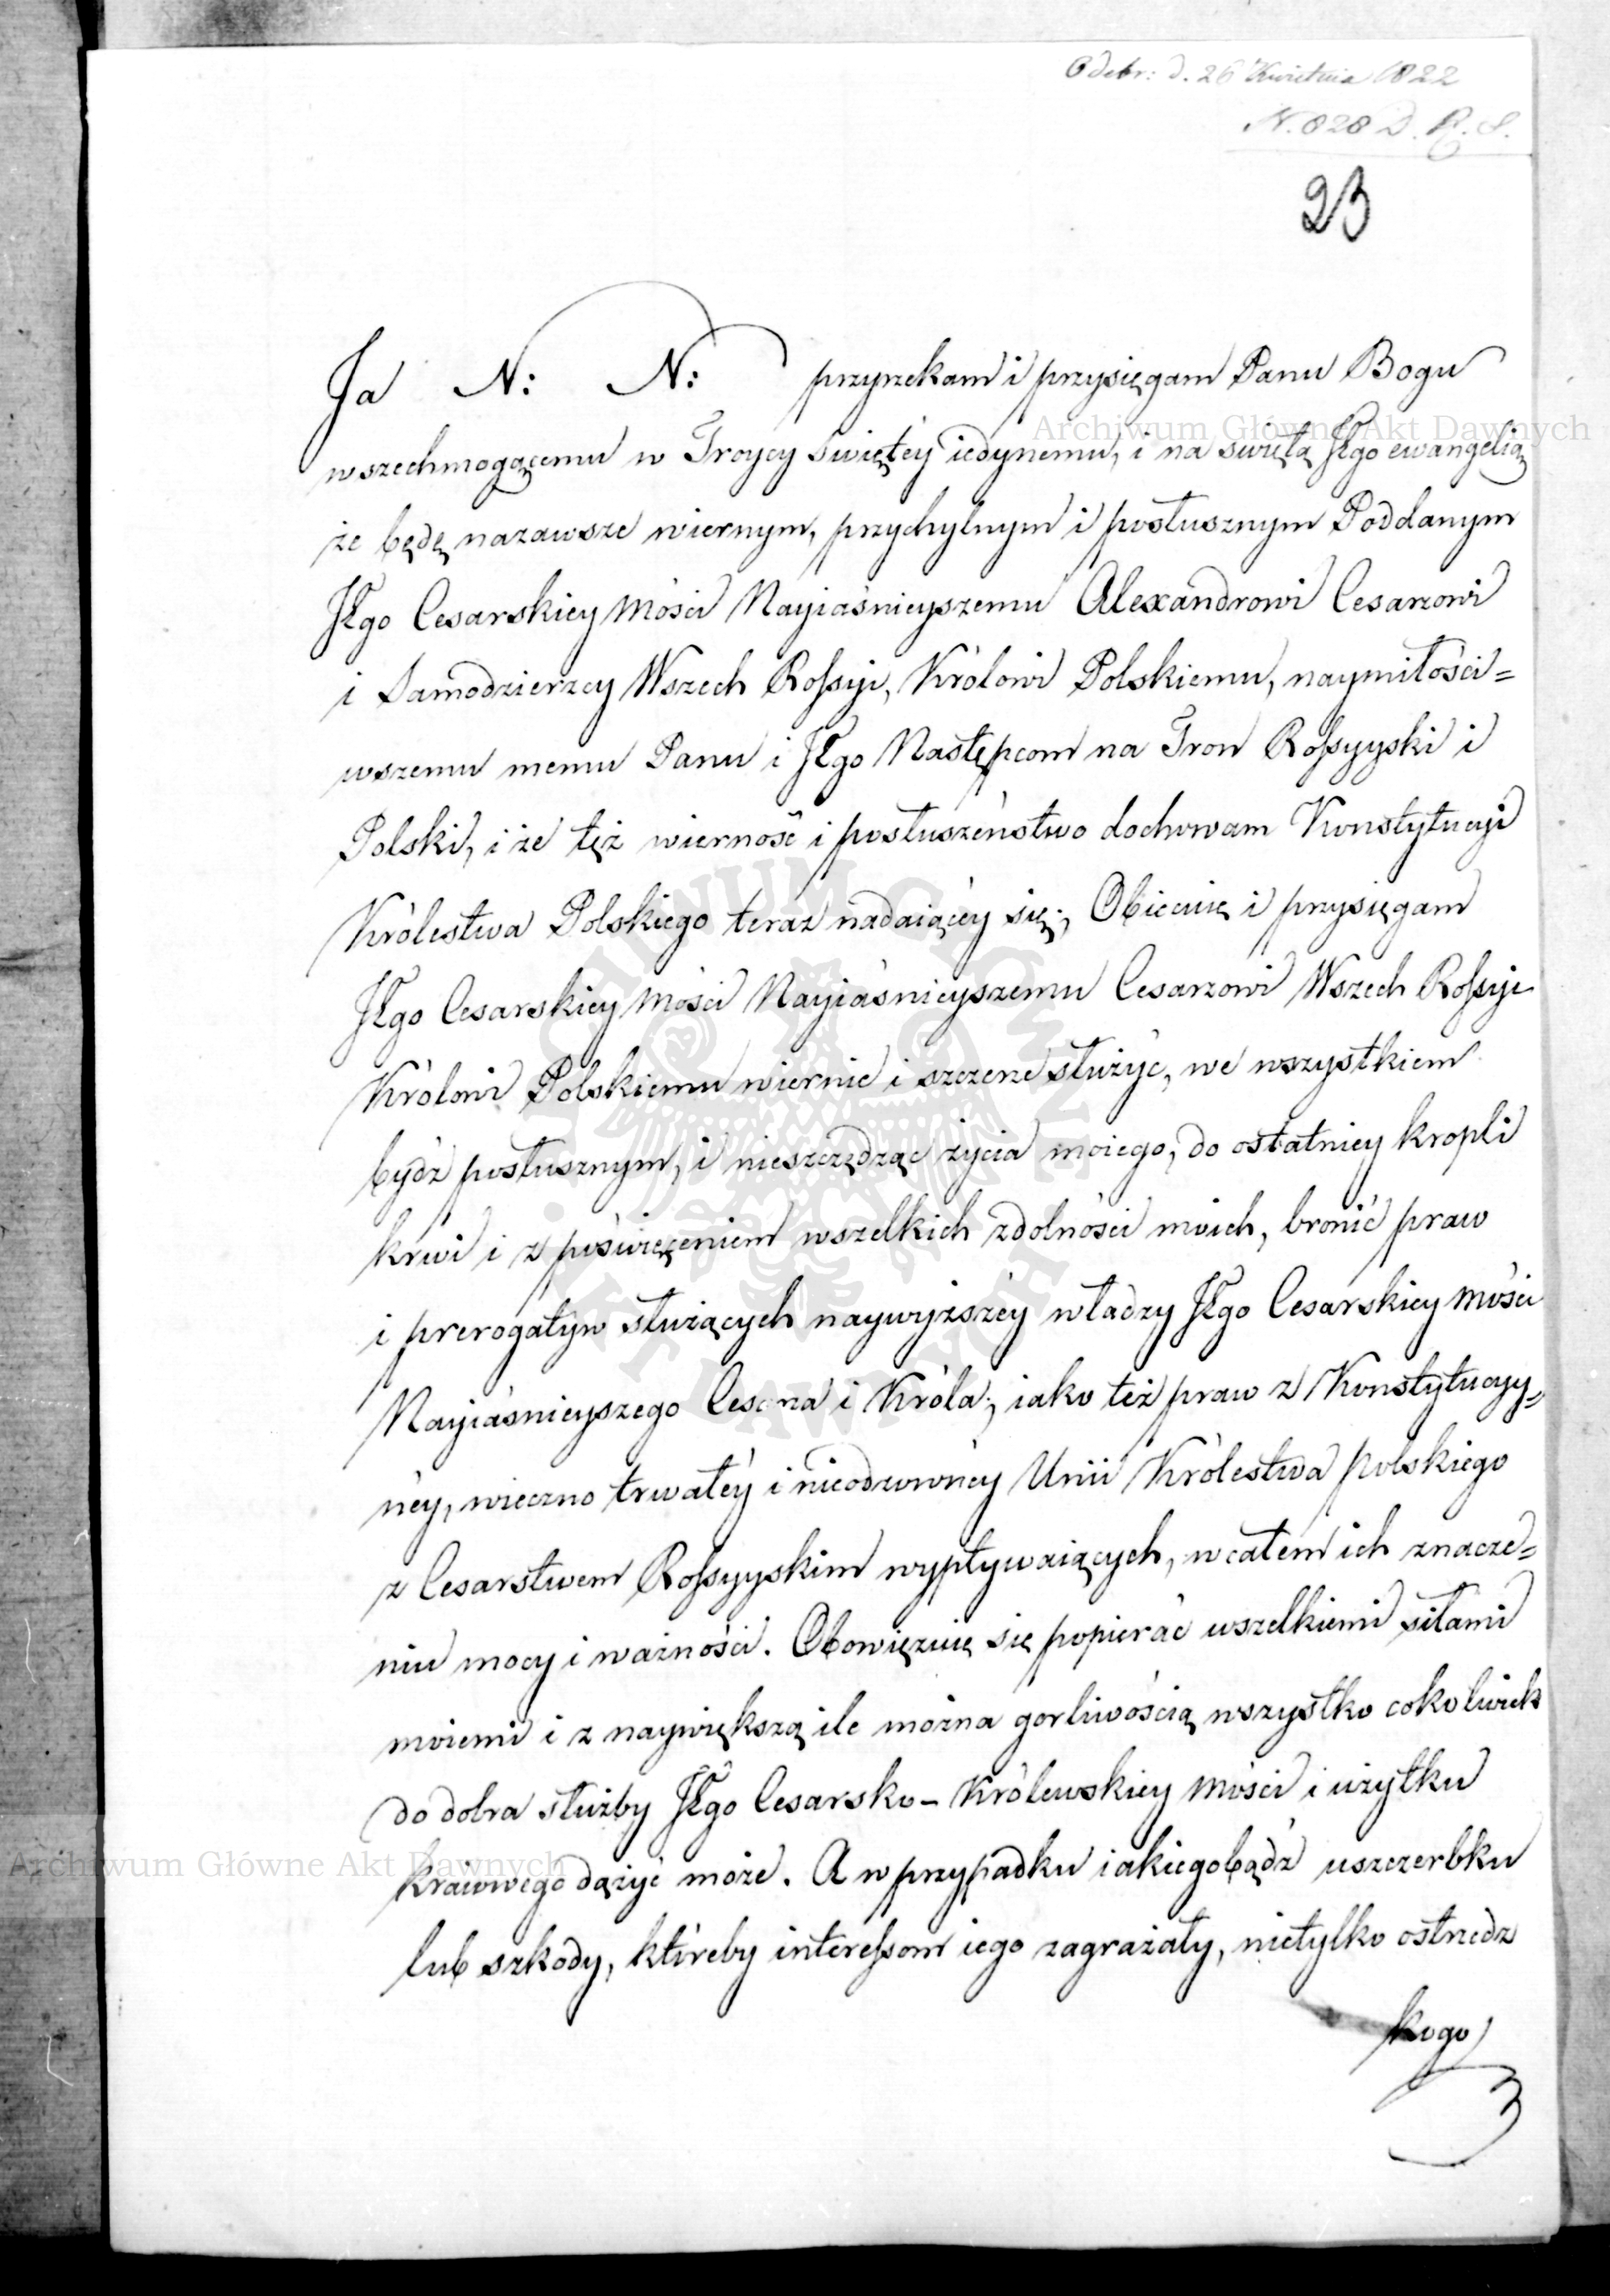 Odebr: d. 26 Kwietnia 1822
N. 828 D. R. S.
23
Ja N: N: przyrzekam i przysięgam Panu Bogu
Archiwum Główne Akt Dawnych
wszechmogącemu w Troycy świętéy iedynemu, i na swiętą JEgo ewangelią
że będę nazawsze wiernym, przychylnym i posłusznym Poddanym
JEgo Cesarskiey Mości Nayiaśnieyszemu Alexandrowi Cesarzowi
i Samodzierzcy Wszech Rossyi, Królowi Polskiemu, naymiłości=
wszemu memu Panu i JEgo Następcom na Tron Rossyyski i
Polski, i że też wierność i posłuszeństwo dochowam Konstytucyi
Królestwa Polskiego teraz nadaiącéy się; Obiecuię i przysięgam
JEgo Cesarskiey Mości Nayiaśnieyszemu Cesarzowi Wszech Rossyi
Królowi Polskiemu wiernie i szczerze służyć, we wszystkiem
bydź posłusznym, i nieszczędząc życia moiego, do ostatniey kropli
krwi i z poświęceniem wszelkich zdolności moich, bronić praw
i prerogatyw służących naywyższéy władzy JEgo Cesarskiey Mości
Nayiaśnieyszego Cesarza i Króla; iako też praw z Konstytucyy=
néy, wieczno trwałéy i nieodzownéy Unii Królestwa polskiego
z Cesarstwem Rossyyskim wypływaiących, w całem ich znacze=
niu mocy i ważności. Obowięzuię się popierać wszelkiemi siłami
moiemi i z naywiększą ile można gorliwością wszystko cokolwiek
do dobra służby JEgo Cesarsko-Królewskiey Mości i użytku
Archiwum Główne Akt Dawnych
kraiowego dążyć może. A w przypadku iakiegobądź uszczerbku
lub szkody, któreby interessom iego zagrażały, nietylko ostrzedz
kogo
ARCHIWUM GŁÓWNE AKT DAWNYCH